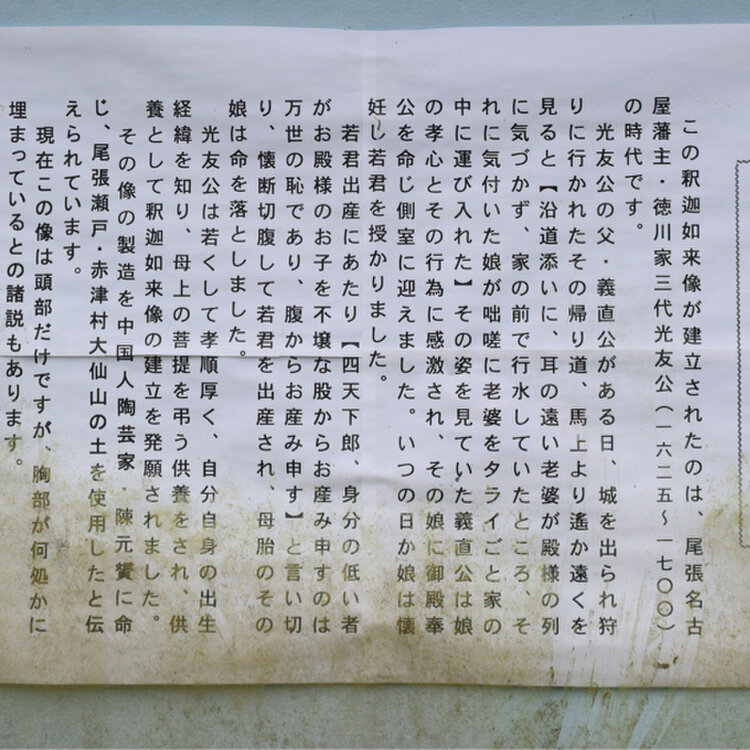 この釈迦如来像が建立されたのは、尾張名古
屋藩主・徳川家三代光友公（一六二五～一七〇〇）
の時代です。
光友公の父・義直公がある日、城を出られ狩
りに行かれたその帰り道、馬上より遙か遠くを
見ると【沿道添いに、耳の遠い老婆が殿様の列
に気づかず、家の前で行水していたところ、そ
れに気付いた娘が咄嗟に老婆をタライごと家の
中に運び入れた】その姿を見ていた義直公は娘
の孝心とその行為に感激され、その娘に御殿奉
公を命じ側室に迎えました。いつの日か娘は懐
妊し若君を授かりました。
若君出産にあたり【四天下郎、身分の低い者
がお殿様のお子を不壌な股からお産み申すのは
万世の恥であり、腹からお産み申す】と言い切
り、懐断切腹して若君を出産され、母胎のその
娘は命を落としました。
光友公は若くして孝順厚く、自分自身の出生
経緯を知り、母上の菩提を弔う供養をされ、供
養として釈迦如来像の建立を発願されました。
その像の製造を中国人陶芸家・陳元贇に命
じ、尾張瀬戸・赤津村大仙山の土を使用したと伝
えられています。
現在この像は頭部だけですが、胸部が何処かに
埋まっているとの諸説もあります。